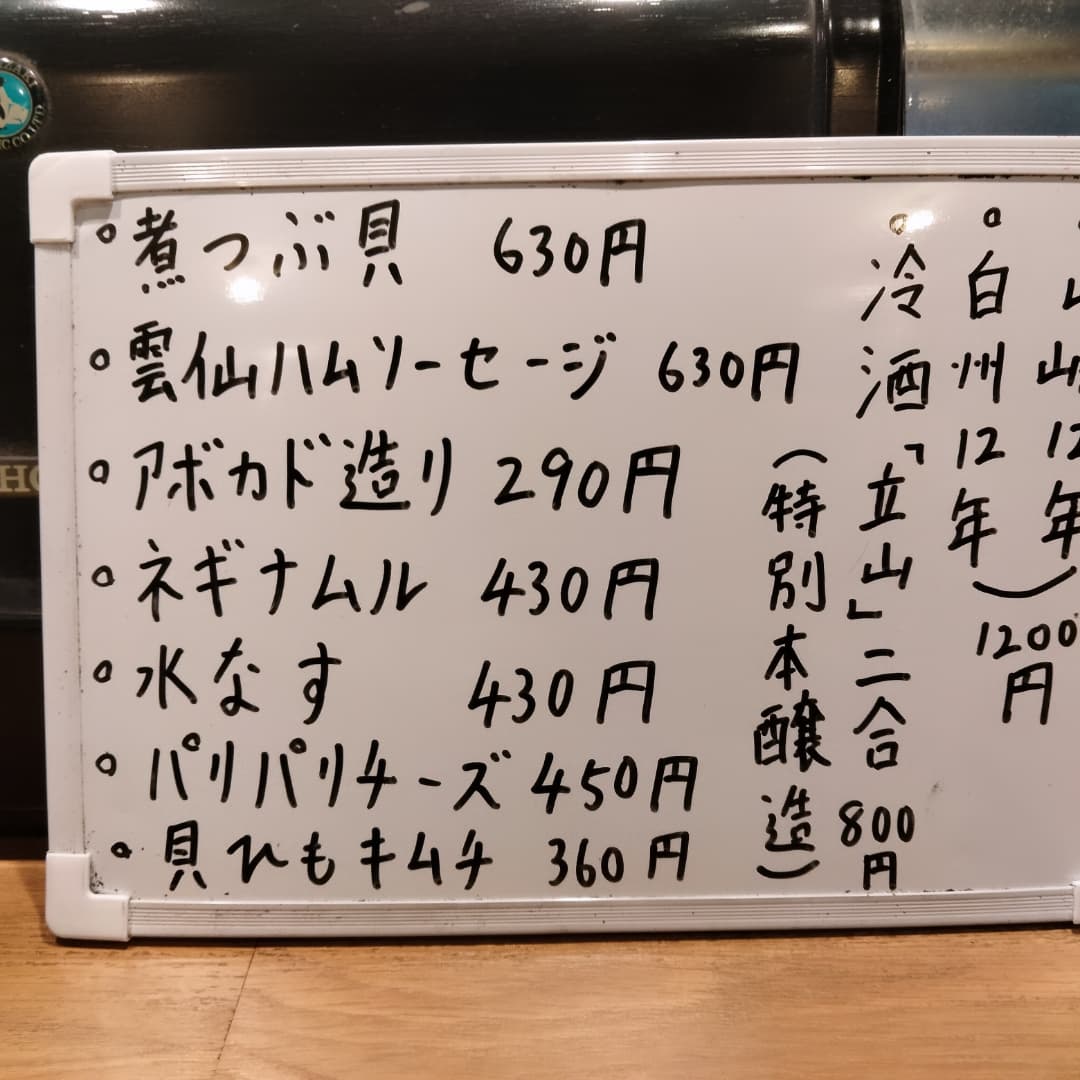 煮つぶ貝 630円
雲仙ハムソーセージ 630円
アボカド造り 290円
ネギナムル 430円
水なす 430円
パリパリチーズ 450円
貝ひもキムチ 360円
山12年
白州12年
1200円
冷酒「立山」二合 800円
(特別本醸造)